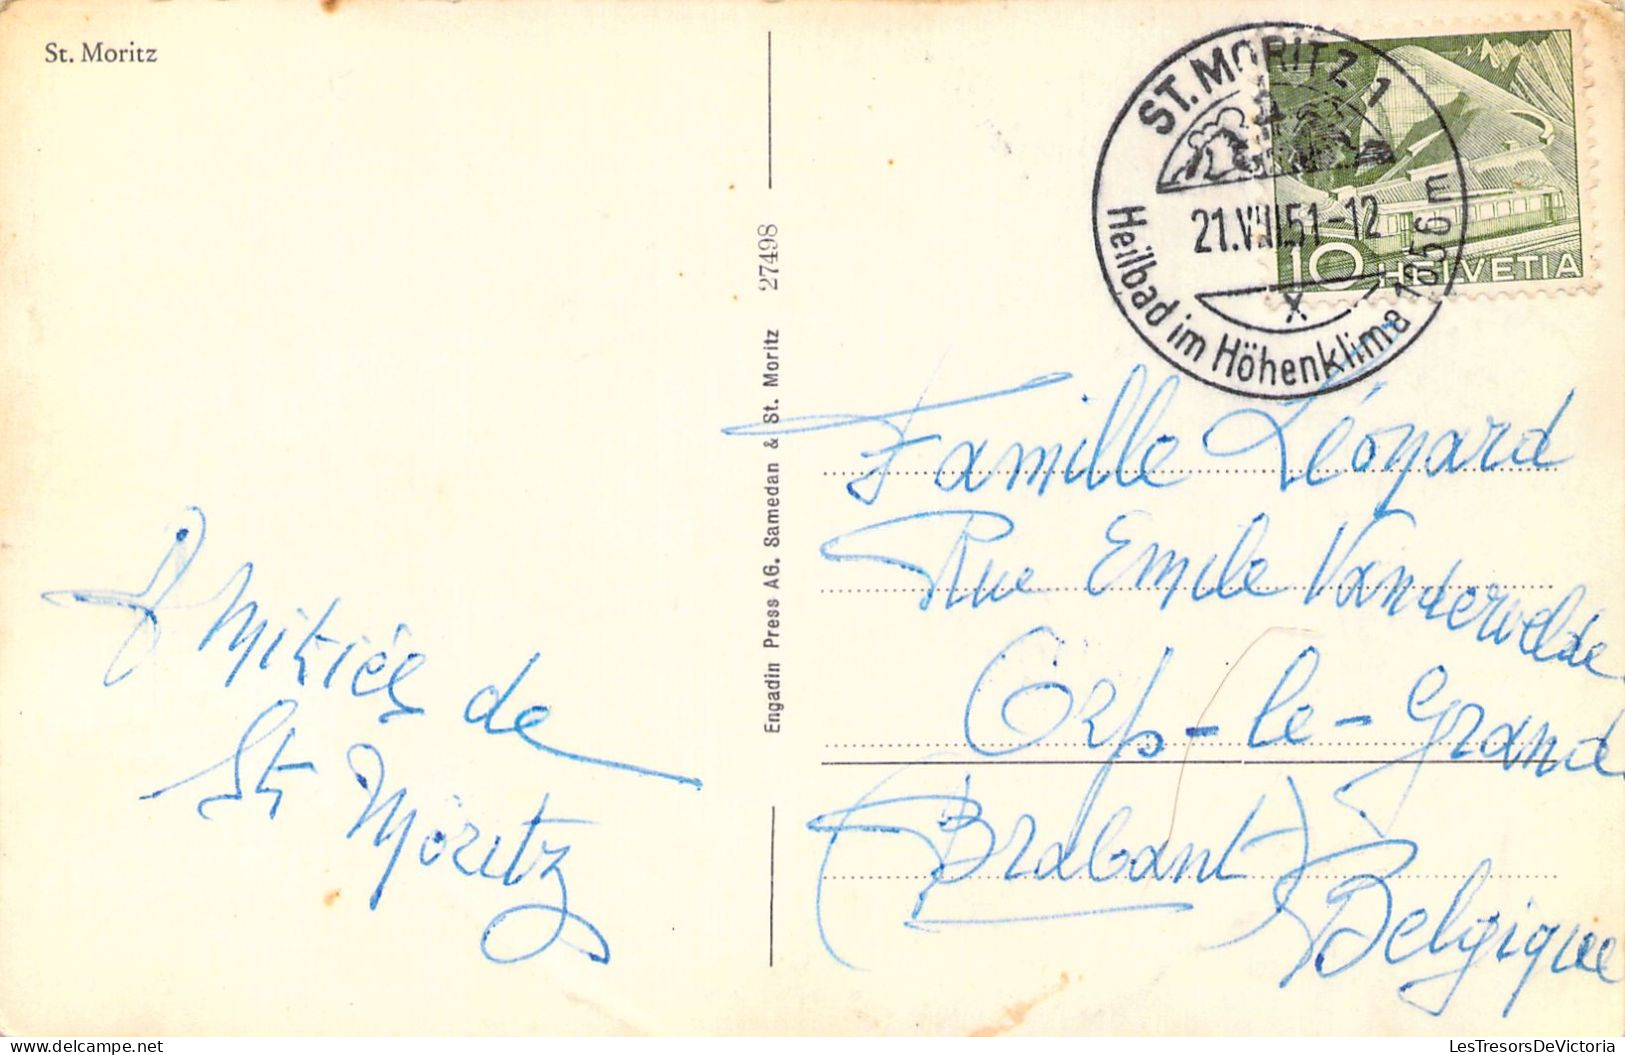 St. Moritz
ST. MORITZ 1
21.VIII.51-12
Heilbad im Höhenklima 1856m
10 HELVETIA
Engadin Press AG. Samedan & St. Moritz 27498
Amitiés de
St Moritz
Famille Léonard
Rue Emile Vandervelde
Orp-le-Grand
(Brabant)
Belgique
LesTresorsDeVictoria